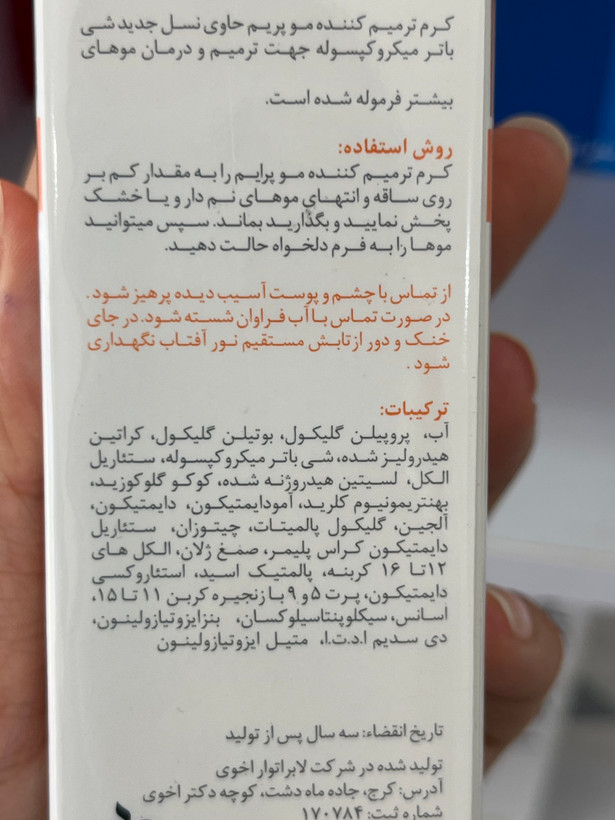 کرم ترمیم کننده مو پریم حاوی نسل جدید شی
باتر میکروکپسوله جهت ترمیم و درمان موهای
بیشتر فرموله شده است.
روش استفاده:
کرم ترمیم کننده مو پرایم را به مقدار کم بر
روی ساقه و انتهای موهای نم دار و یا خشک
پخش نمایید و بگذارید بماند. سپس میتوانید
موها را به فرم دلخواه حالت دهید.
از تماس با چشم و پوست آسیب دیده پرهیز شود.
در صورت تماس با آب فراوان شسته شود. در جای
خنک و دور از تابش مستقیم نور آفتاب نگهداری
شود.
ترکیبات:
آب، پروپیلن گلیکول، بوتیلن گلیکول، کراتین
هیدرولیز شده، شی باتر میکروکپسوله، ستئاریل
الکل، لسیتین هیدروژنه شده، کوکو گلوکوزید،
بهنتریمونیوم کلرید، آمودایمتیکون، دایمتیکون،
آلجین، گلیکول پالمیتات، چیتوزان، ستئاریل
دایمتیکون کراس پلیمر، صمغ ژلان، الکل های
۱۲ تا ۱۶ کربنه، پالمتیک اسید، استئاروکسی
دایمتیکون، پرت ۵ و ۹ با زنجیره کربن ۱۱ تا ۱۵،
اسانس، سیکلوپنتاسیلوکسان، بنزایزوتیازولینون،
دی سدیم ا.د.ت.ا، متیل ایزوتیازولینون
تاریخ انقضاء: سه سال پس از تولید
تولید شده در شرکت لابراتوار اخوی
آدرس: کرج، جاده ماه دشت، کوچه دکتر اخوی
شماره ثبت: ۱۷۰۷۸۴